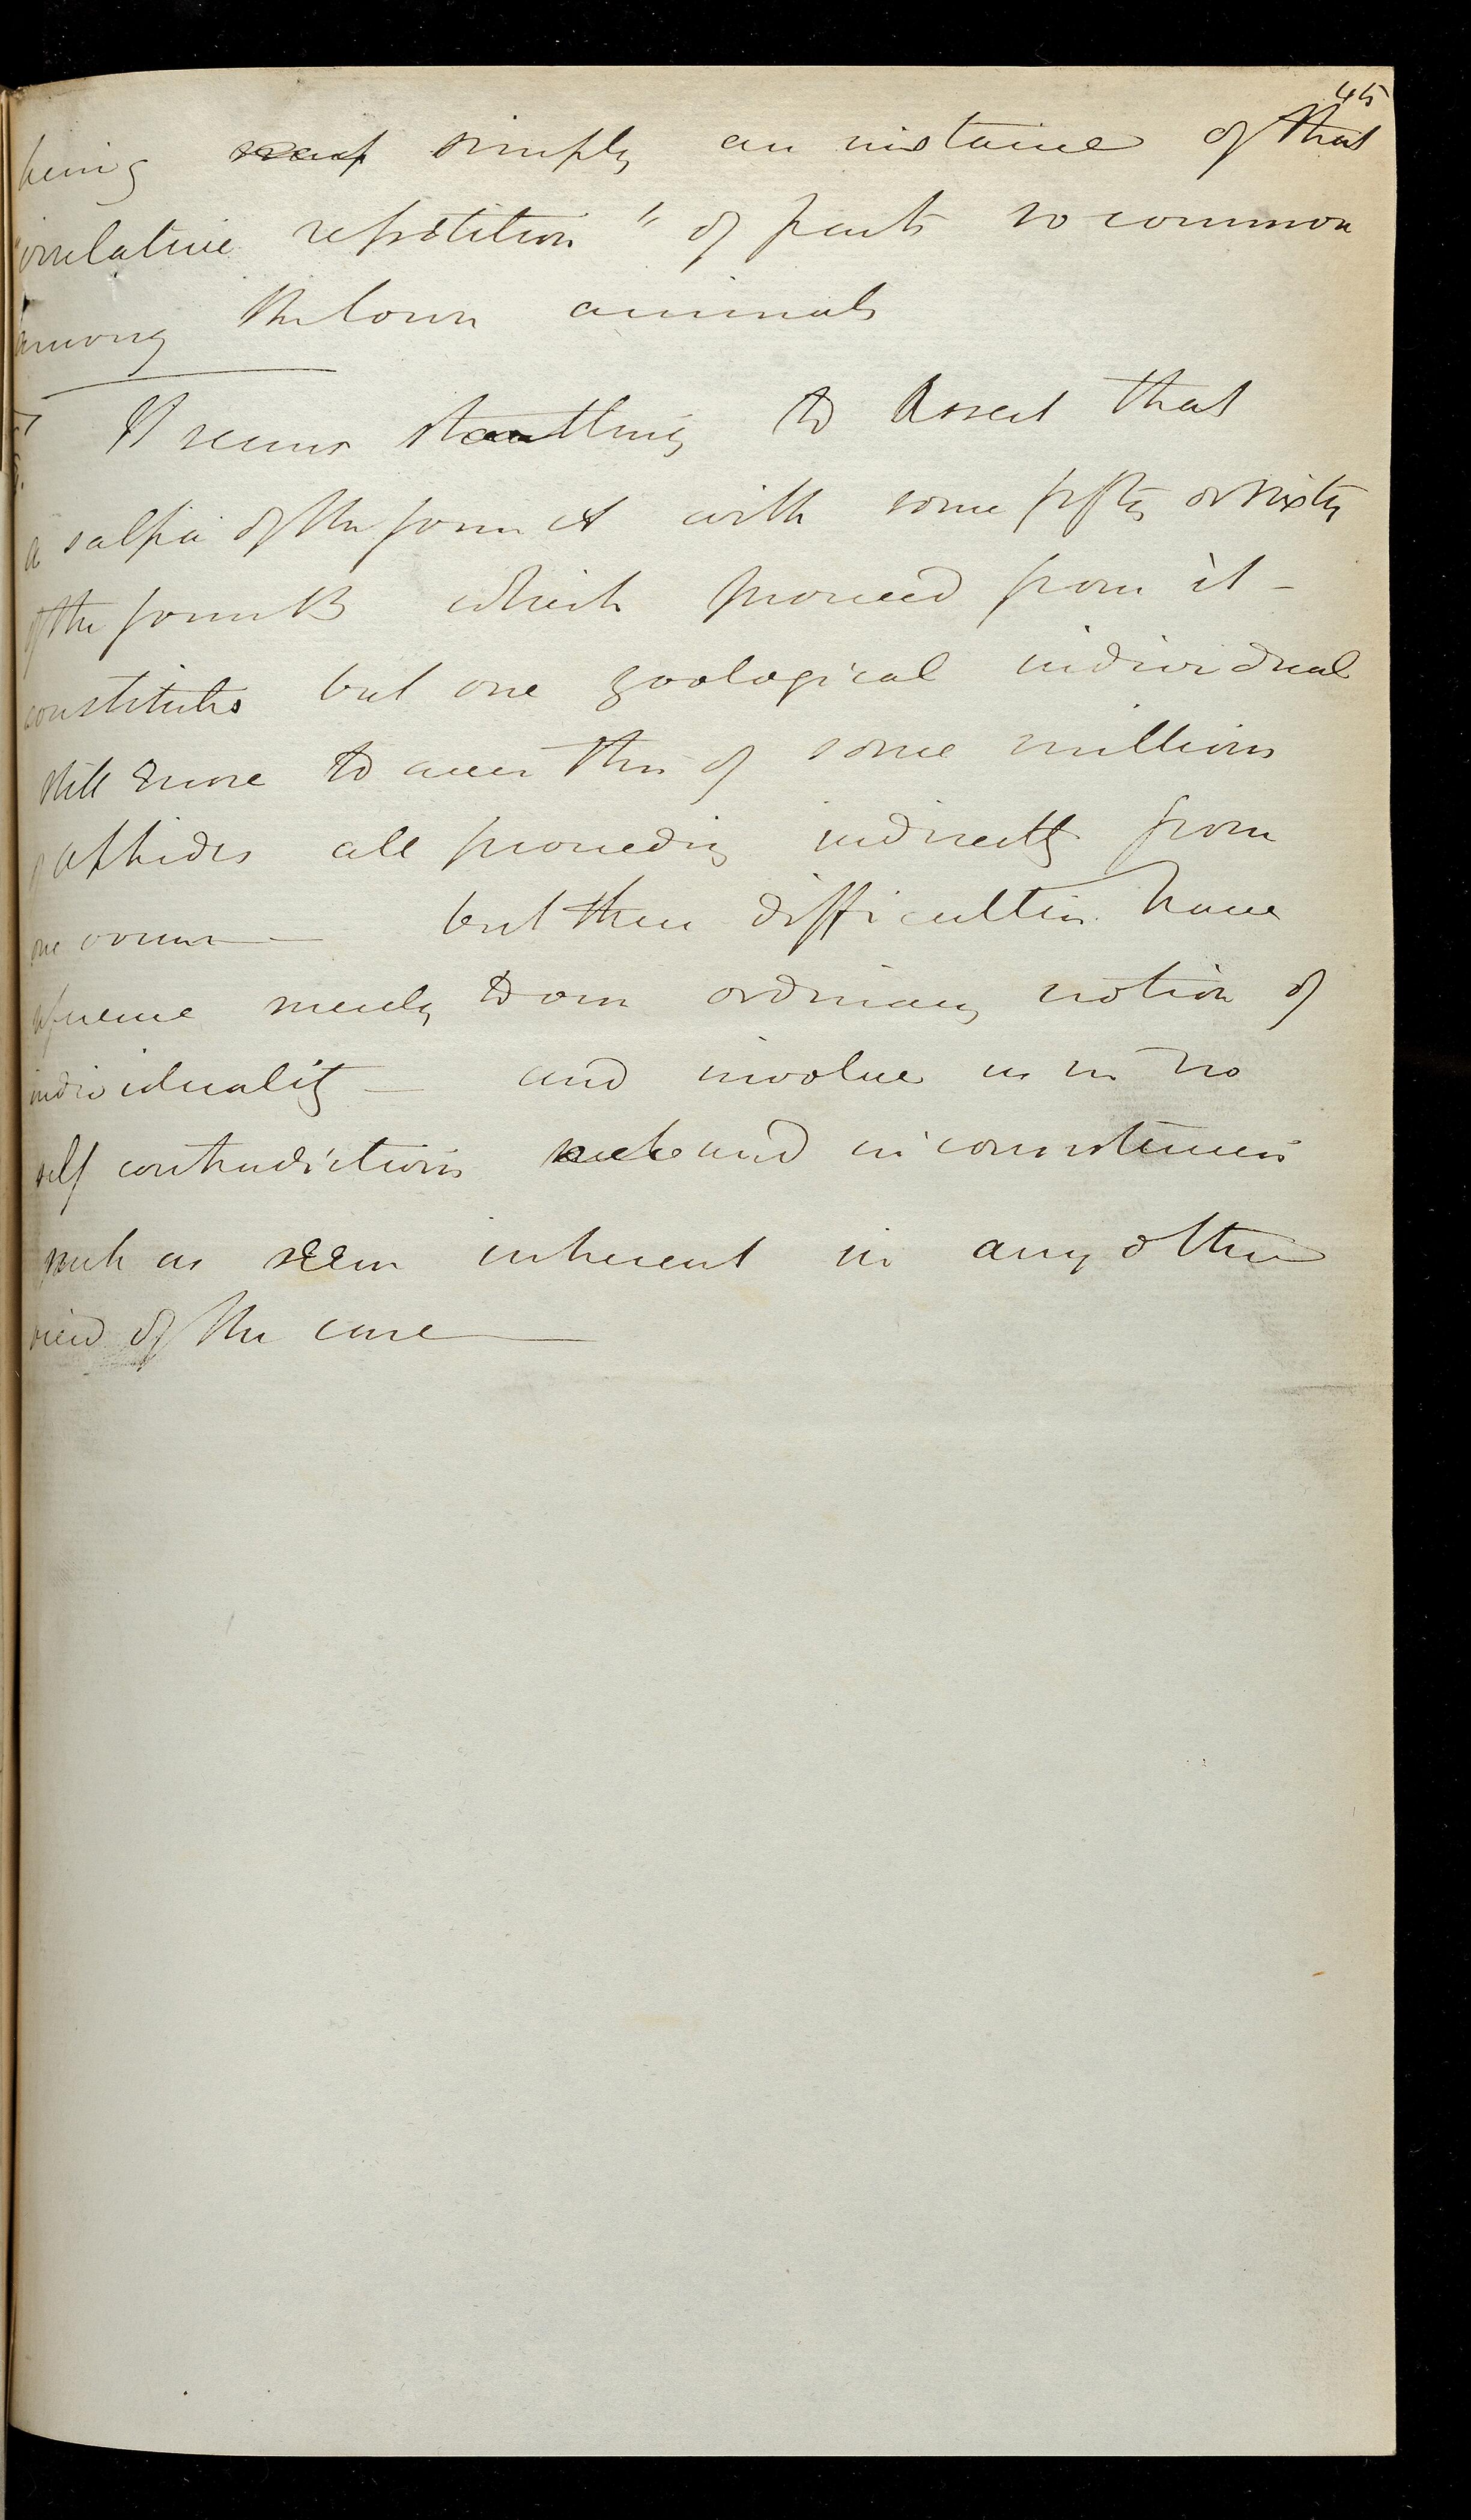 45
being simply an instance of that
"irrelative repetition" of parts so common
among the lower animals
It seems startling to assert that
a salpa of the form A with some fifty or sixty
of the form B which proceed from it –
constitutes but one zoological individual
still more to aver this of some millions
of aphides all proceeding indirectly from
one ovum — but these difficulties have
reference merely to our ordinary notion of
individuality — and involve us in no
self contradictions and inconsistencies
such as seem inherent in any other
view of the case —